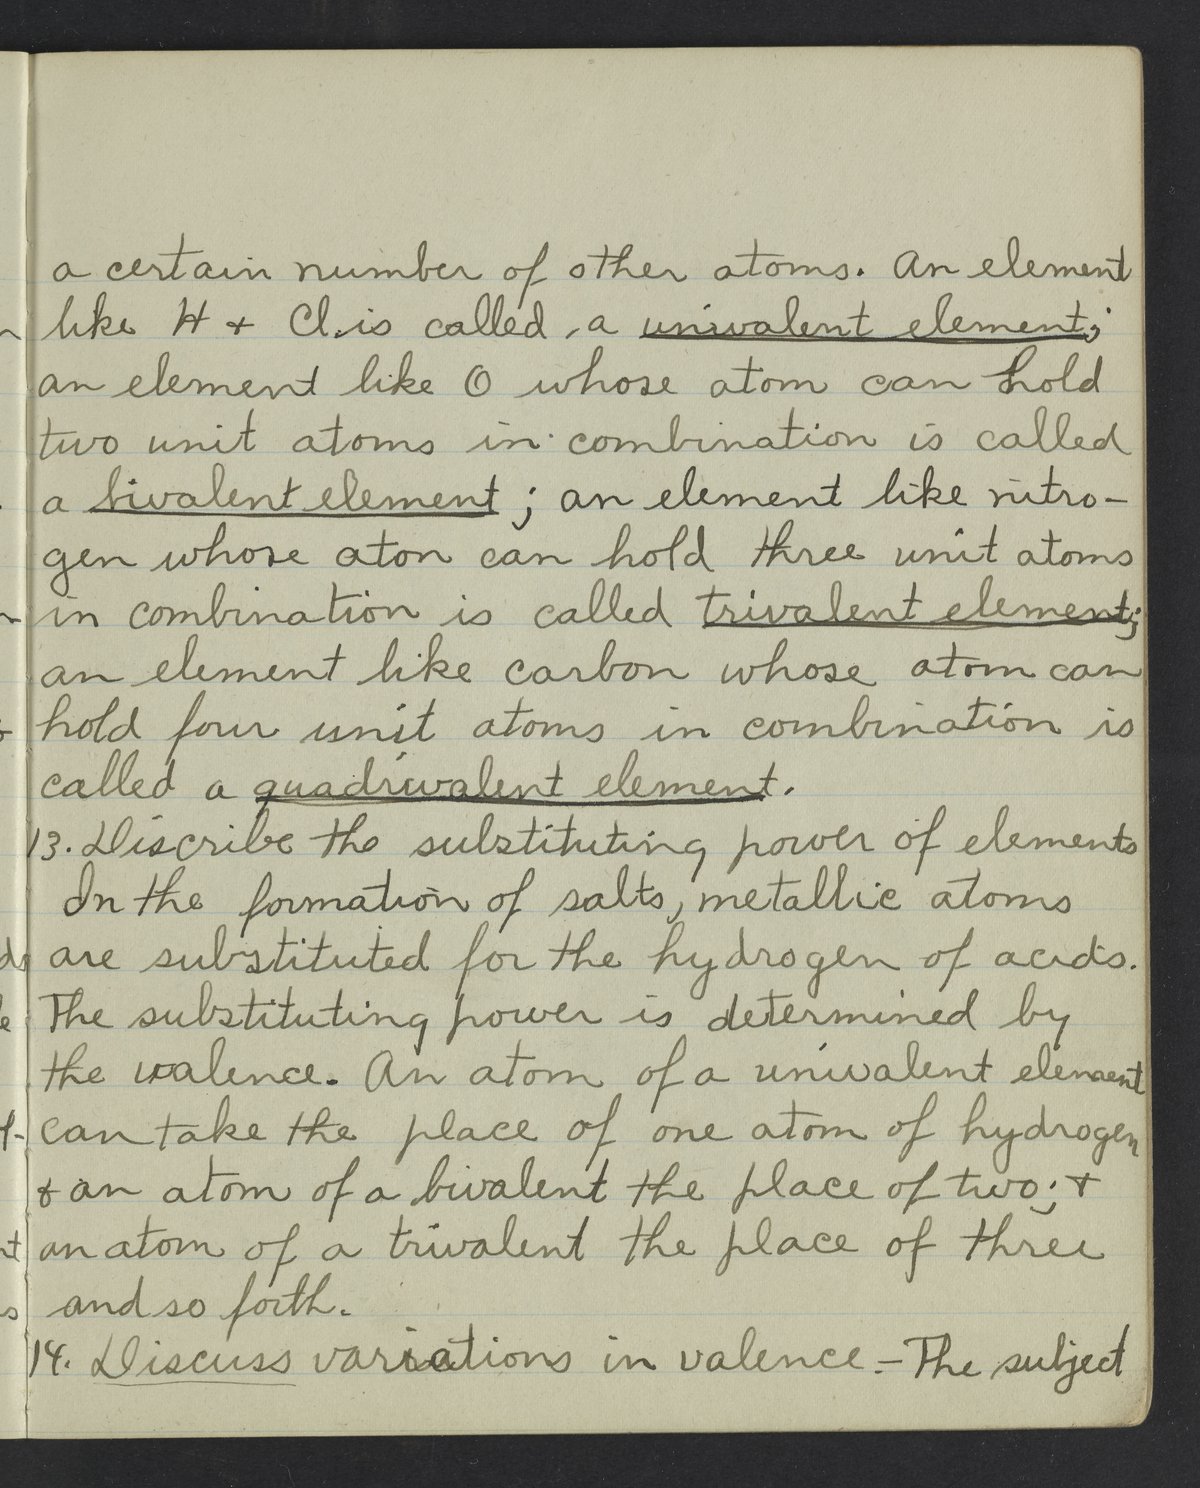 a certain number of other atoms. An element
like H + Cl. is called a univalent element;
an element like O whose atom can hold
two unit atoms in combination is called
a bivalent element; an element like nitro-
gen whose aton can hold three unit atoms
in combination is called trivalent element;
an element like carbon whose atom can
hold four unit atoms in combination is
called a quadrivalent element.
13. Discribe the substituting power of elements
In the formation of salts, metallic atoms
are substituted for the hydrogen of acids.
The substituting power is determined by
the valence. An atom of a univalent element
can take the place of one atom of hydrogen
& an atom of a bivalent the place of two; +
an atom of a trivalent the place of three
and so forth.
14. Discuss variations in valence - The subject